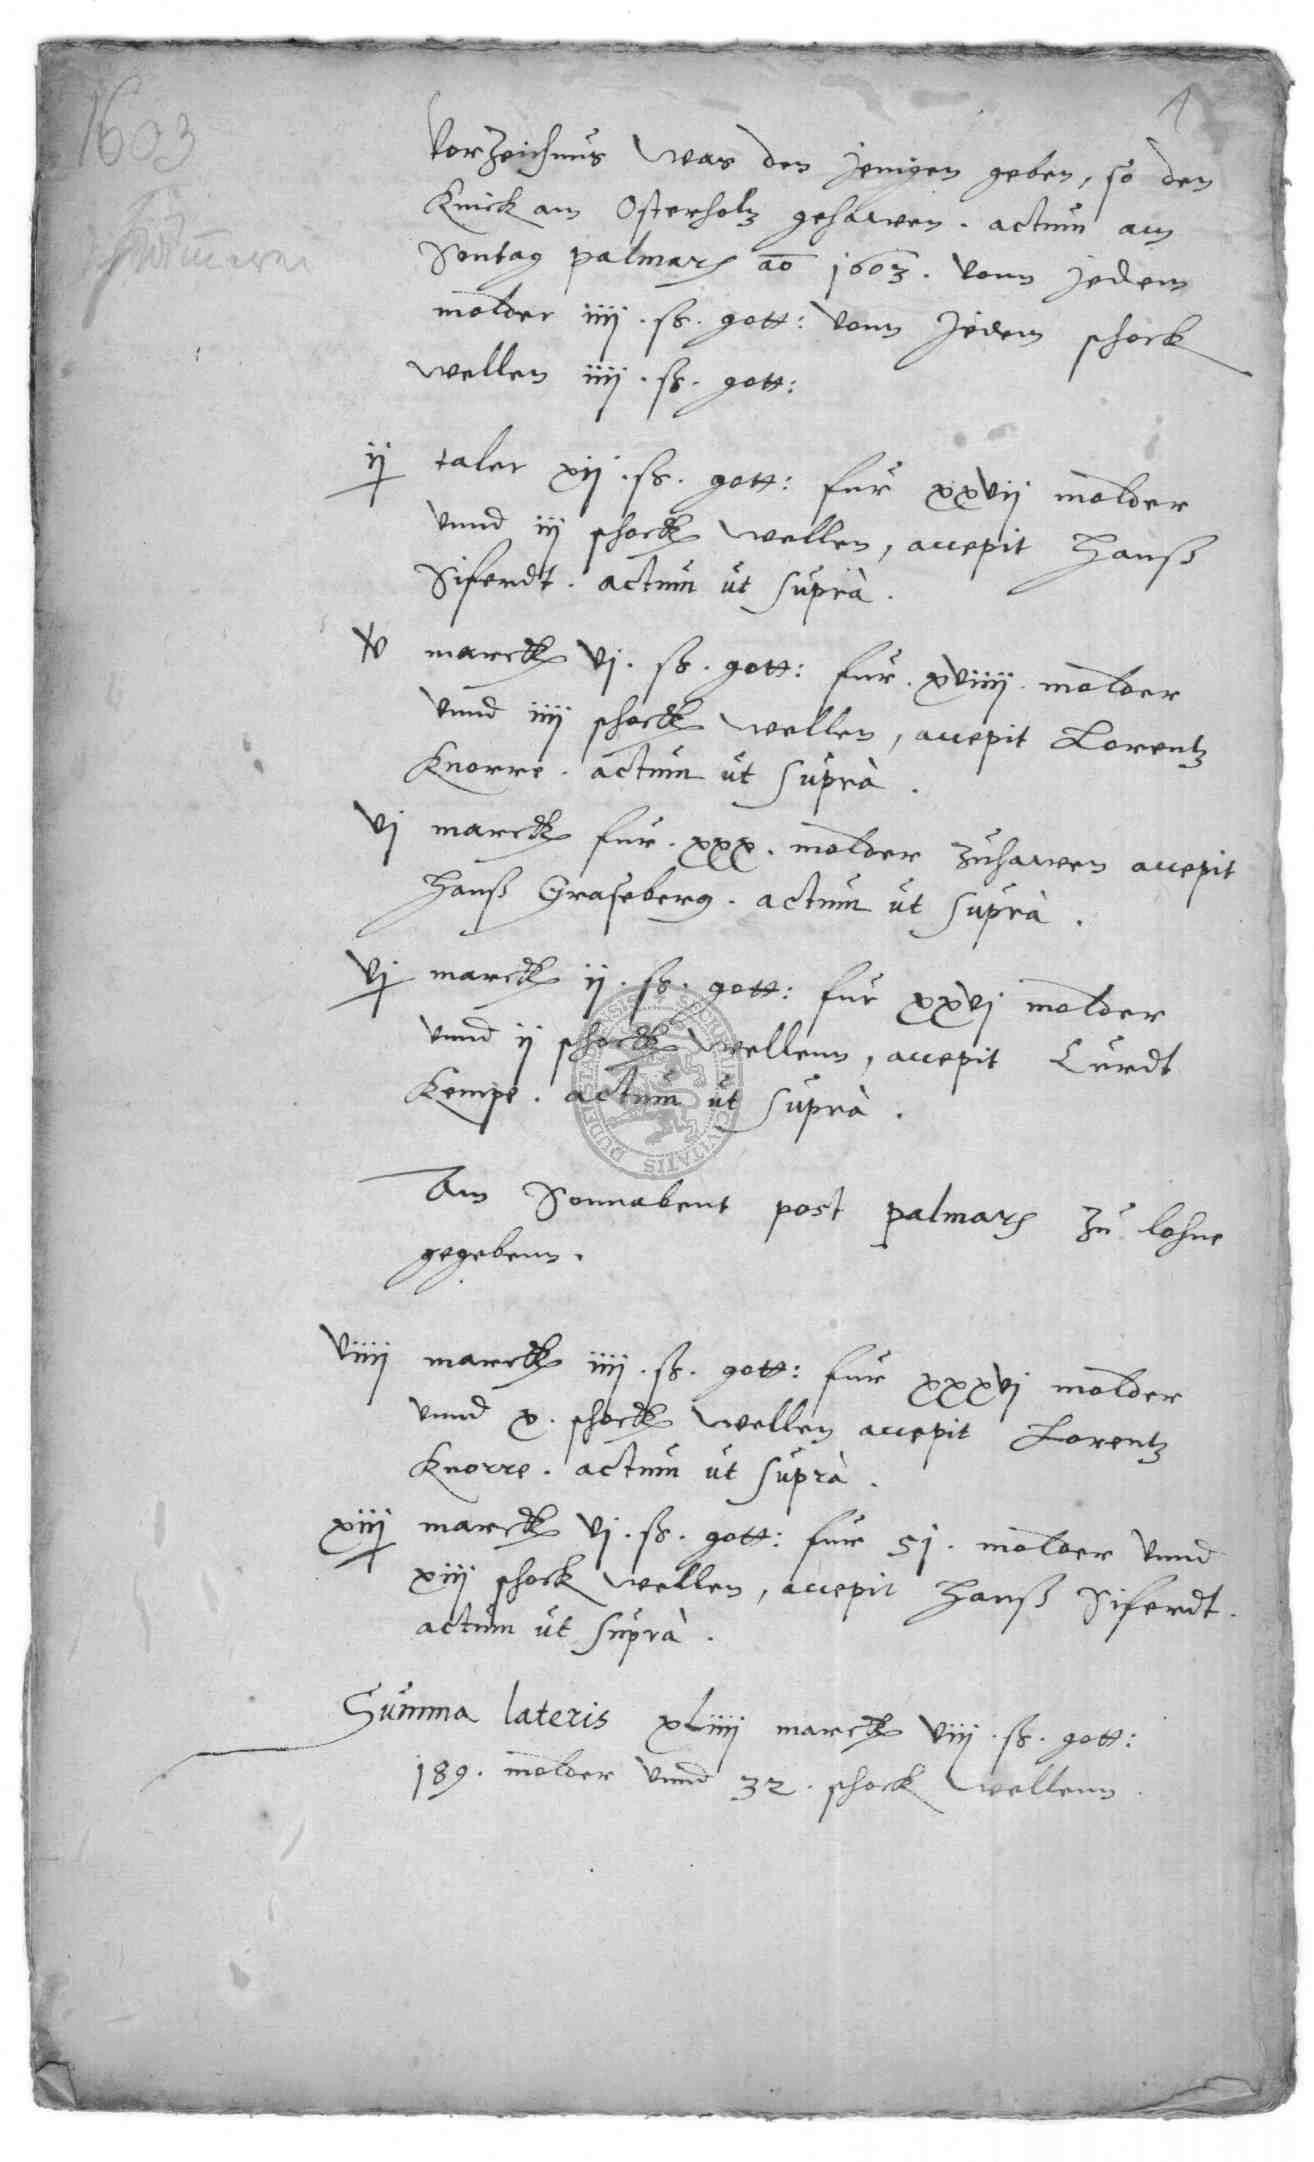 1603
1
Vorzeichnus was den jenigen geben, so den
Knick am Osterholz gehawen. actum am
Sontag palmar ao 1603. vonn jedem
molder iiij. ß. gott: vonn jedem schock
wellen iiij. ß. gott:
ij taler xij. ß. gott: fur xxvij molder
vnnd iij schock wellen, accepit Hanß
Siferdt. actum ut supra.
v marck vj. ß. gott: fur xviiij. molder
vnnd iiij schock wellen, accepit Lorentz
Knorre. actum ut supra.
vj marck fur. xxx. molder zuhawen accepit
Hanß Graseberg. actum ut supra.
vj marck ij. ß. gott: fur xxvj molder
vnnd ij schock wellenn, accepit Curdt
Kempe. actum ut supra.
Am Sonnabent post palmar zu lohne
gegebenn.
viiij marck iiij. ß. gott: fur xxxvj molder
vnnd x. schock wellen accepit Lorentz
Knorre. actum ut supra.
xiij marck vj. ß. gott: fur 51. molder vnnd
xiij schock wellen, accepit Hanß Siferdt.
actum ut supra.
Summa lateris xliiij marck viij. ß. gott:
189. molder vnnd 32. schock wellenn.